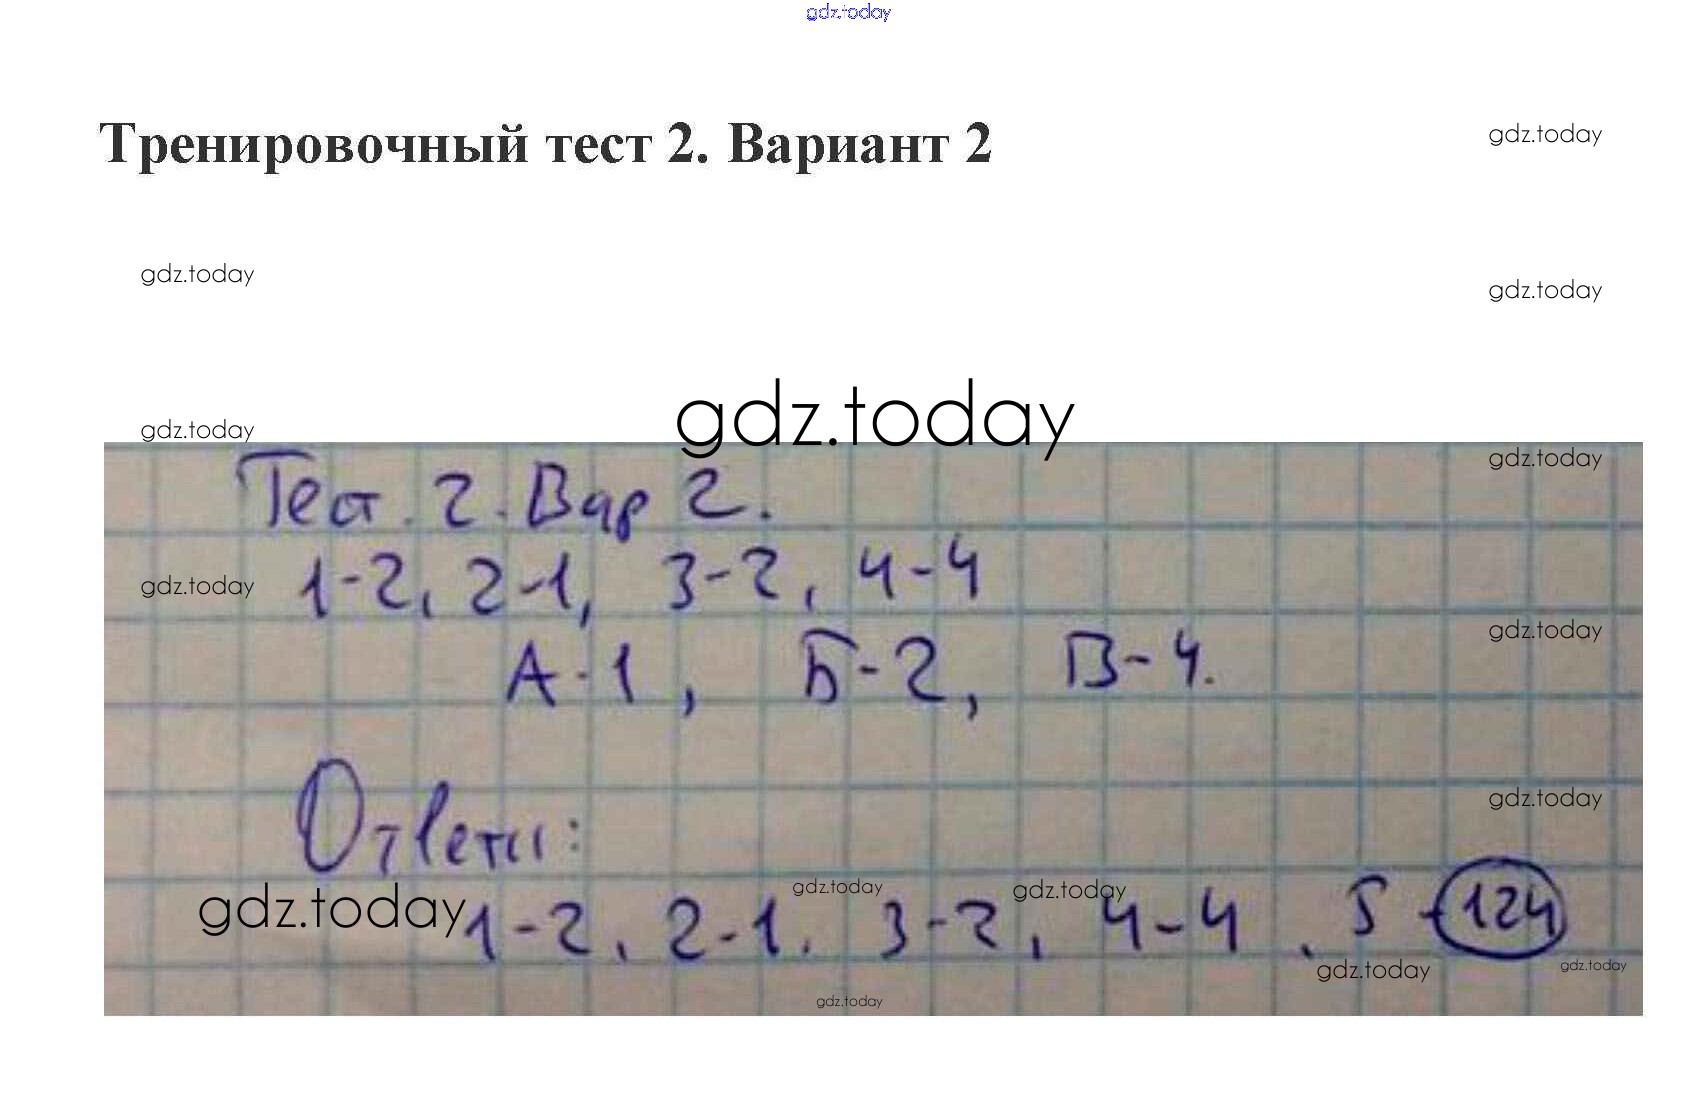 gdz.today
Тренировочный тест 2. Вариант 2
gdz.today
gdz.today
gdz.today
gdz.today
gdz.today
gdz.today
Тест. 2. Вар 2.
gdz.today
1-2, 2-1, 3-2, 4-4
gdz.today
А-1, Б-2, В-4.
gdz.today
Ответы:
gdz.today
gdz.today
gdz.today
gdz.today
1-2, 2-1, 3-2, 4-4, 5-124
gdz.today
gdz.today
gdz.today